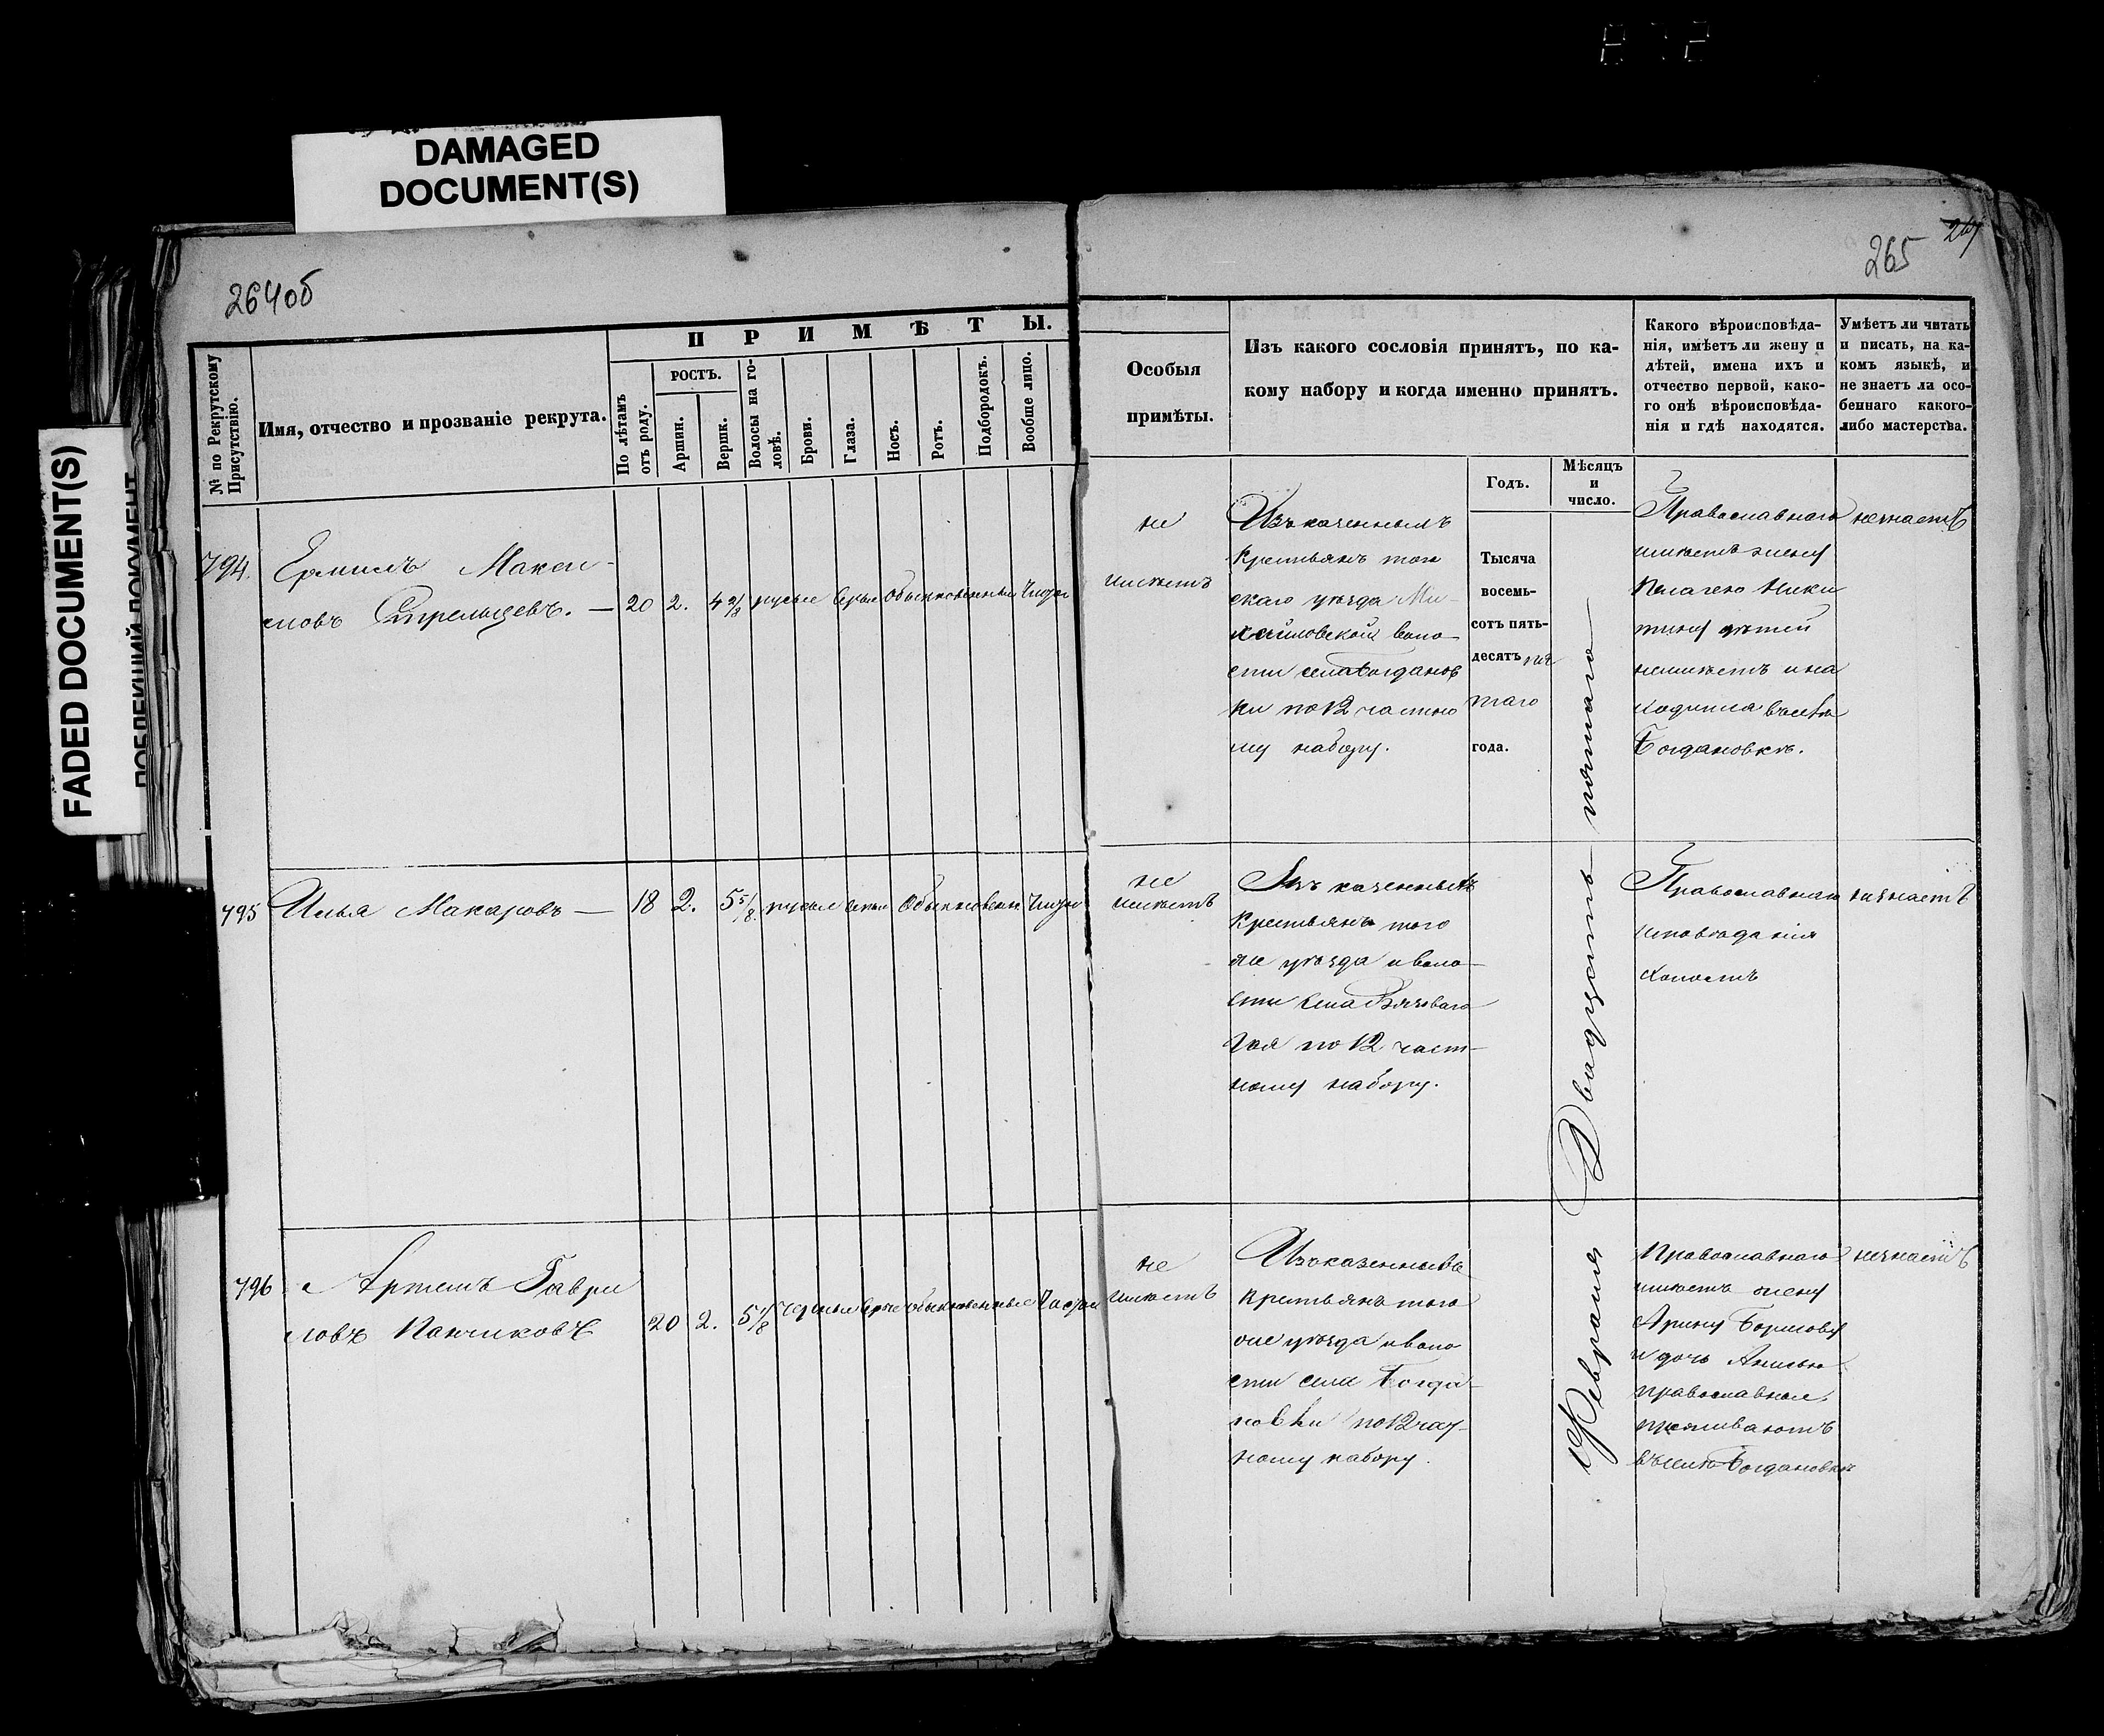 DAMAGED
DOCUMENT(S)
FADED DOCUMENT(S)
264об
265
П Р И М Ѣ Т Ы.
№ по Рекрутскому
Присутствію.
Имя, отчество и прозваніе рекрута.
По лѣтамъ
отъ роду.
РОСТЪ.
Аршин.
Вершк.
Волосы на го-
ловѣ.
Брови.
Глаза.
Носъ.
Ротъ.
Подбородокъ.
Вообще лицо.
Особыя
примѣты.
Изъ какого сословія принятъ, по ка-
кому набору и когда именно принятъ.
Годъ.
Мѣсяцъ
и
число.
Какого вѣроисповѣда-
нія, имѣетъ ли жену и
дѣтей, имена ихъ и
отчество первой, како-
го онѣ вѣроисповѣда-
нія и гдѣ находятся.
Умѣетъ ли читать
и писать, на ка-
комъ языкѣ, и
не знаетъ ли осо-
беннаго какого-
либо мастерства.
794.
Ермилъ Макси-
мовъ Стрельцевъ. —
20 2. 4 2/8 русые серые Обыкновенные Чистое
не
имѣетъ
Изъ казенныхъ
крестьянъ того
уѣзда Ми-
хайловской воло-
сти села Богданов
ки по 12 частно
му набору.
Тысяча
восемь-
сотъ пять-
десятъ пя
таго
года.
Православнаго
имѣетъ жену
Пелагею Ники
тину дѣтей
неимѣетъ и на
ходится въ селѣ
Богдановкѣ.
незнаетъ
Двадцать пятаго
Февраля
795
Илья Макаровъ —
18 2. 5 5/8 русые серые Обыкновенн Чистое
не
имѣетъ
Изъ казенныхъ
крестьянъ того
же уѣзда и воло-
сти села
по 12 част-
ному набору.
Православнаго
исповѣданія
холостъ
незнаетъ
796
Артемъ Гаври
ловъ Панчиковъ
20 2. 5 1/8 черные серые обыкновенные Чистое
не
имѣетъ
Изъ казенныхъ
крестьянъ того
же уѣзда и воло
сти села Богда-
новки по 12 час-
ному набору.
Православнаго
имѣетъ жену
Арину Борисову
и дочь Анисью
православные,
проживаютъ
въ селѣ Богдановкѣ
незнаетъ